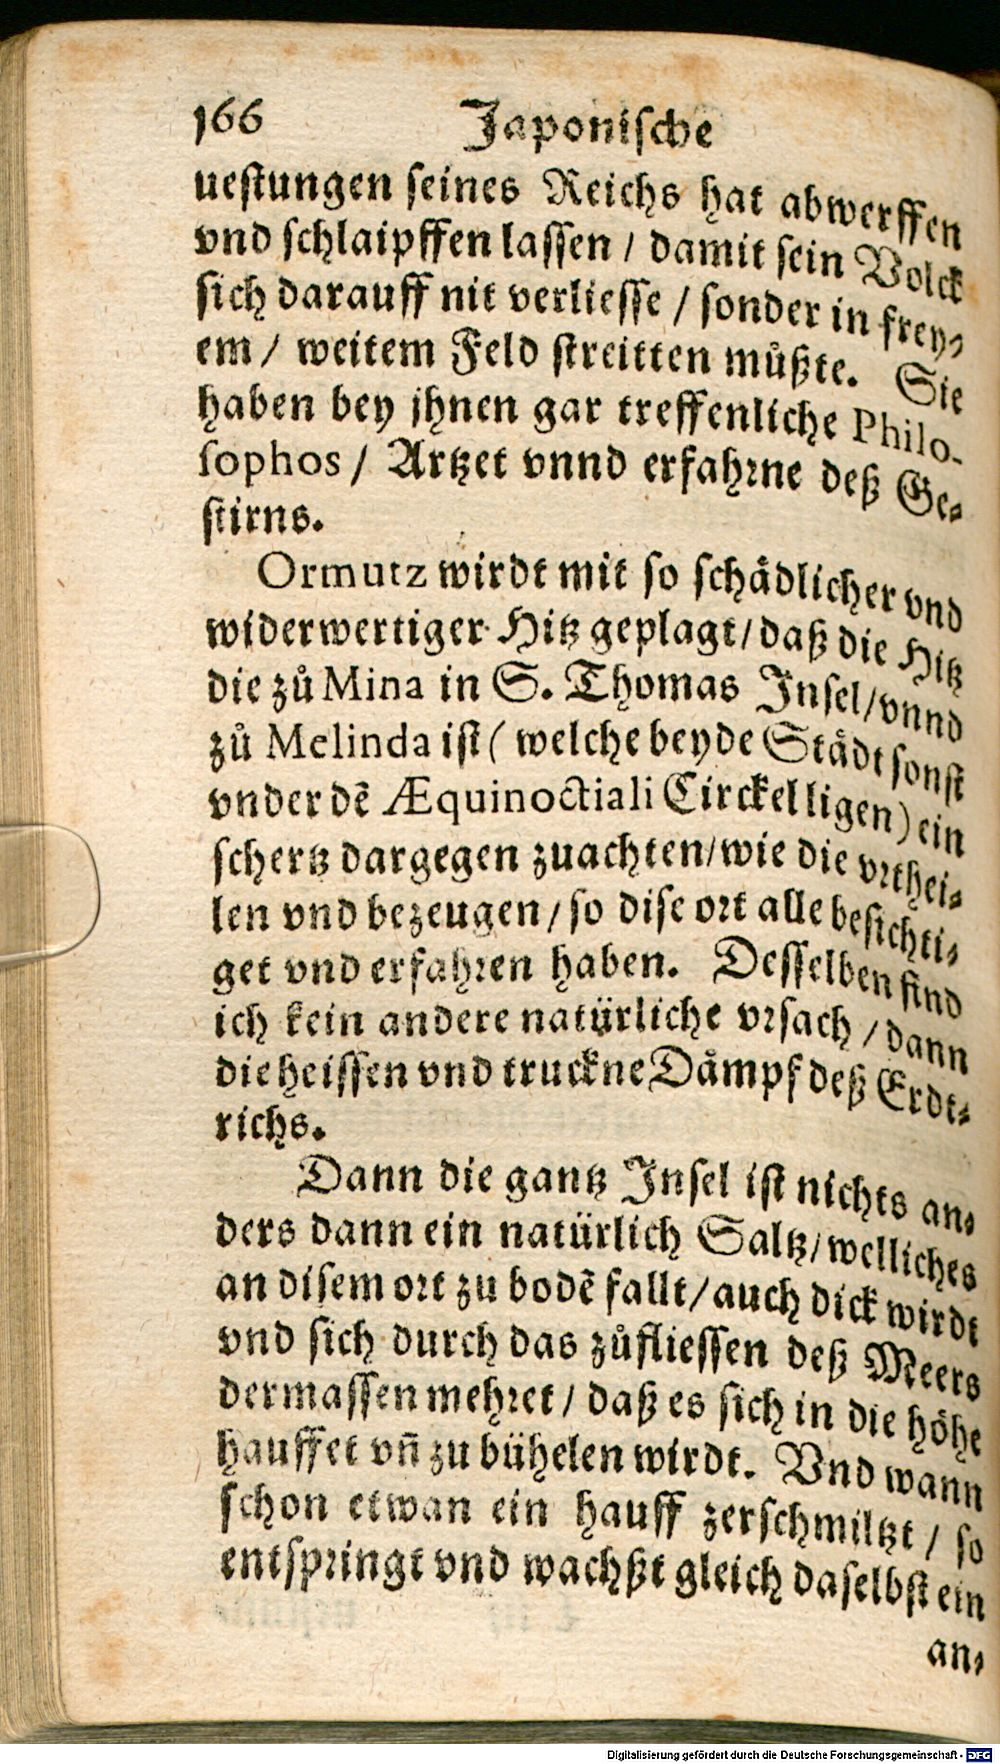 166 Japonische
uestungen seines Reichs hat abwerffen
vnd schlaipffen lassen / damit sein Volck
sich darauff nit verliesse / sonder in frey⸗
em / weitem Feld streitten můßte. Sie
haben bey jhnen gar treffenliche Philo-
sophos / Artzet vnnd erfahrne deß Ge⸗
stirns.
Ormutz wirdt mit so schådlicher vnd
widerwertiger Hitz geplagt / daß die Hitz
die zů Mina in S. Thomas Insel / vnnd
zů Melinda ist ( welche beyde Stådt sonst
vnder dẽ Æquinoctiali Circkel ligen ) ein
schertz dargegen zuachten / wie die vrthei⸗
len vnd bezeugen / so dise ort alle besichti⸗
get vnd erfahren haben. Desselben find
ich kein andere natürliche vrsach / dann
die heissen vnd truckne Dåmpf deß Erdt⸗
richs.
Dann die gantz Insel ist nichts an⸗
ders dann ein natürlich Saltz / welliches
an disem ort zu bodẽ fallt / auch dick wirdt
vnd sich durch das zůfliessen deß Meers
dermassen mehret / daß es sich in die höhe
hauffet vñ zu bühelen wirdt. Vnd wann
schon etwan ein hauff zerschmiltzt / so
entspringt vnd wachßt gleich daselbst ein
an⸗
Digitalisierung gefördert durch die Deutsche Forschungsgemeinschaft - DFG